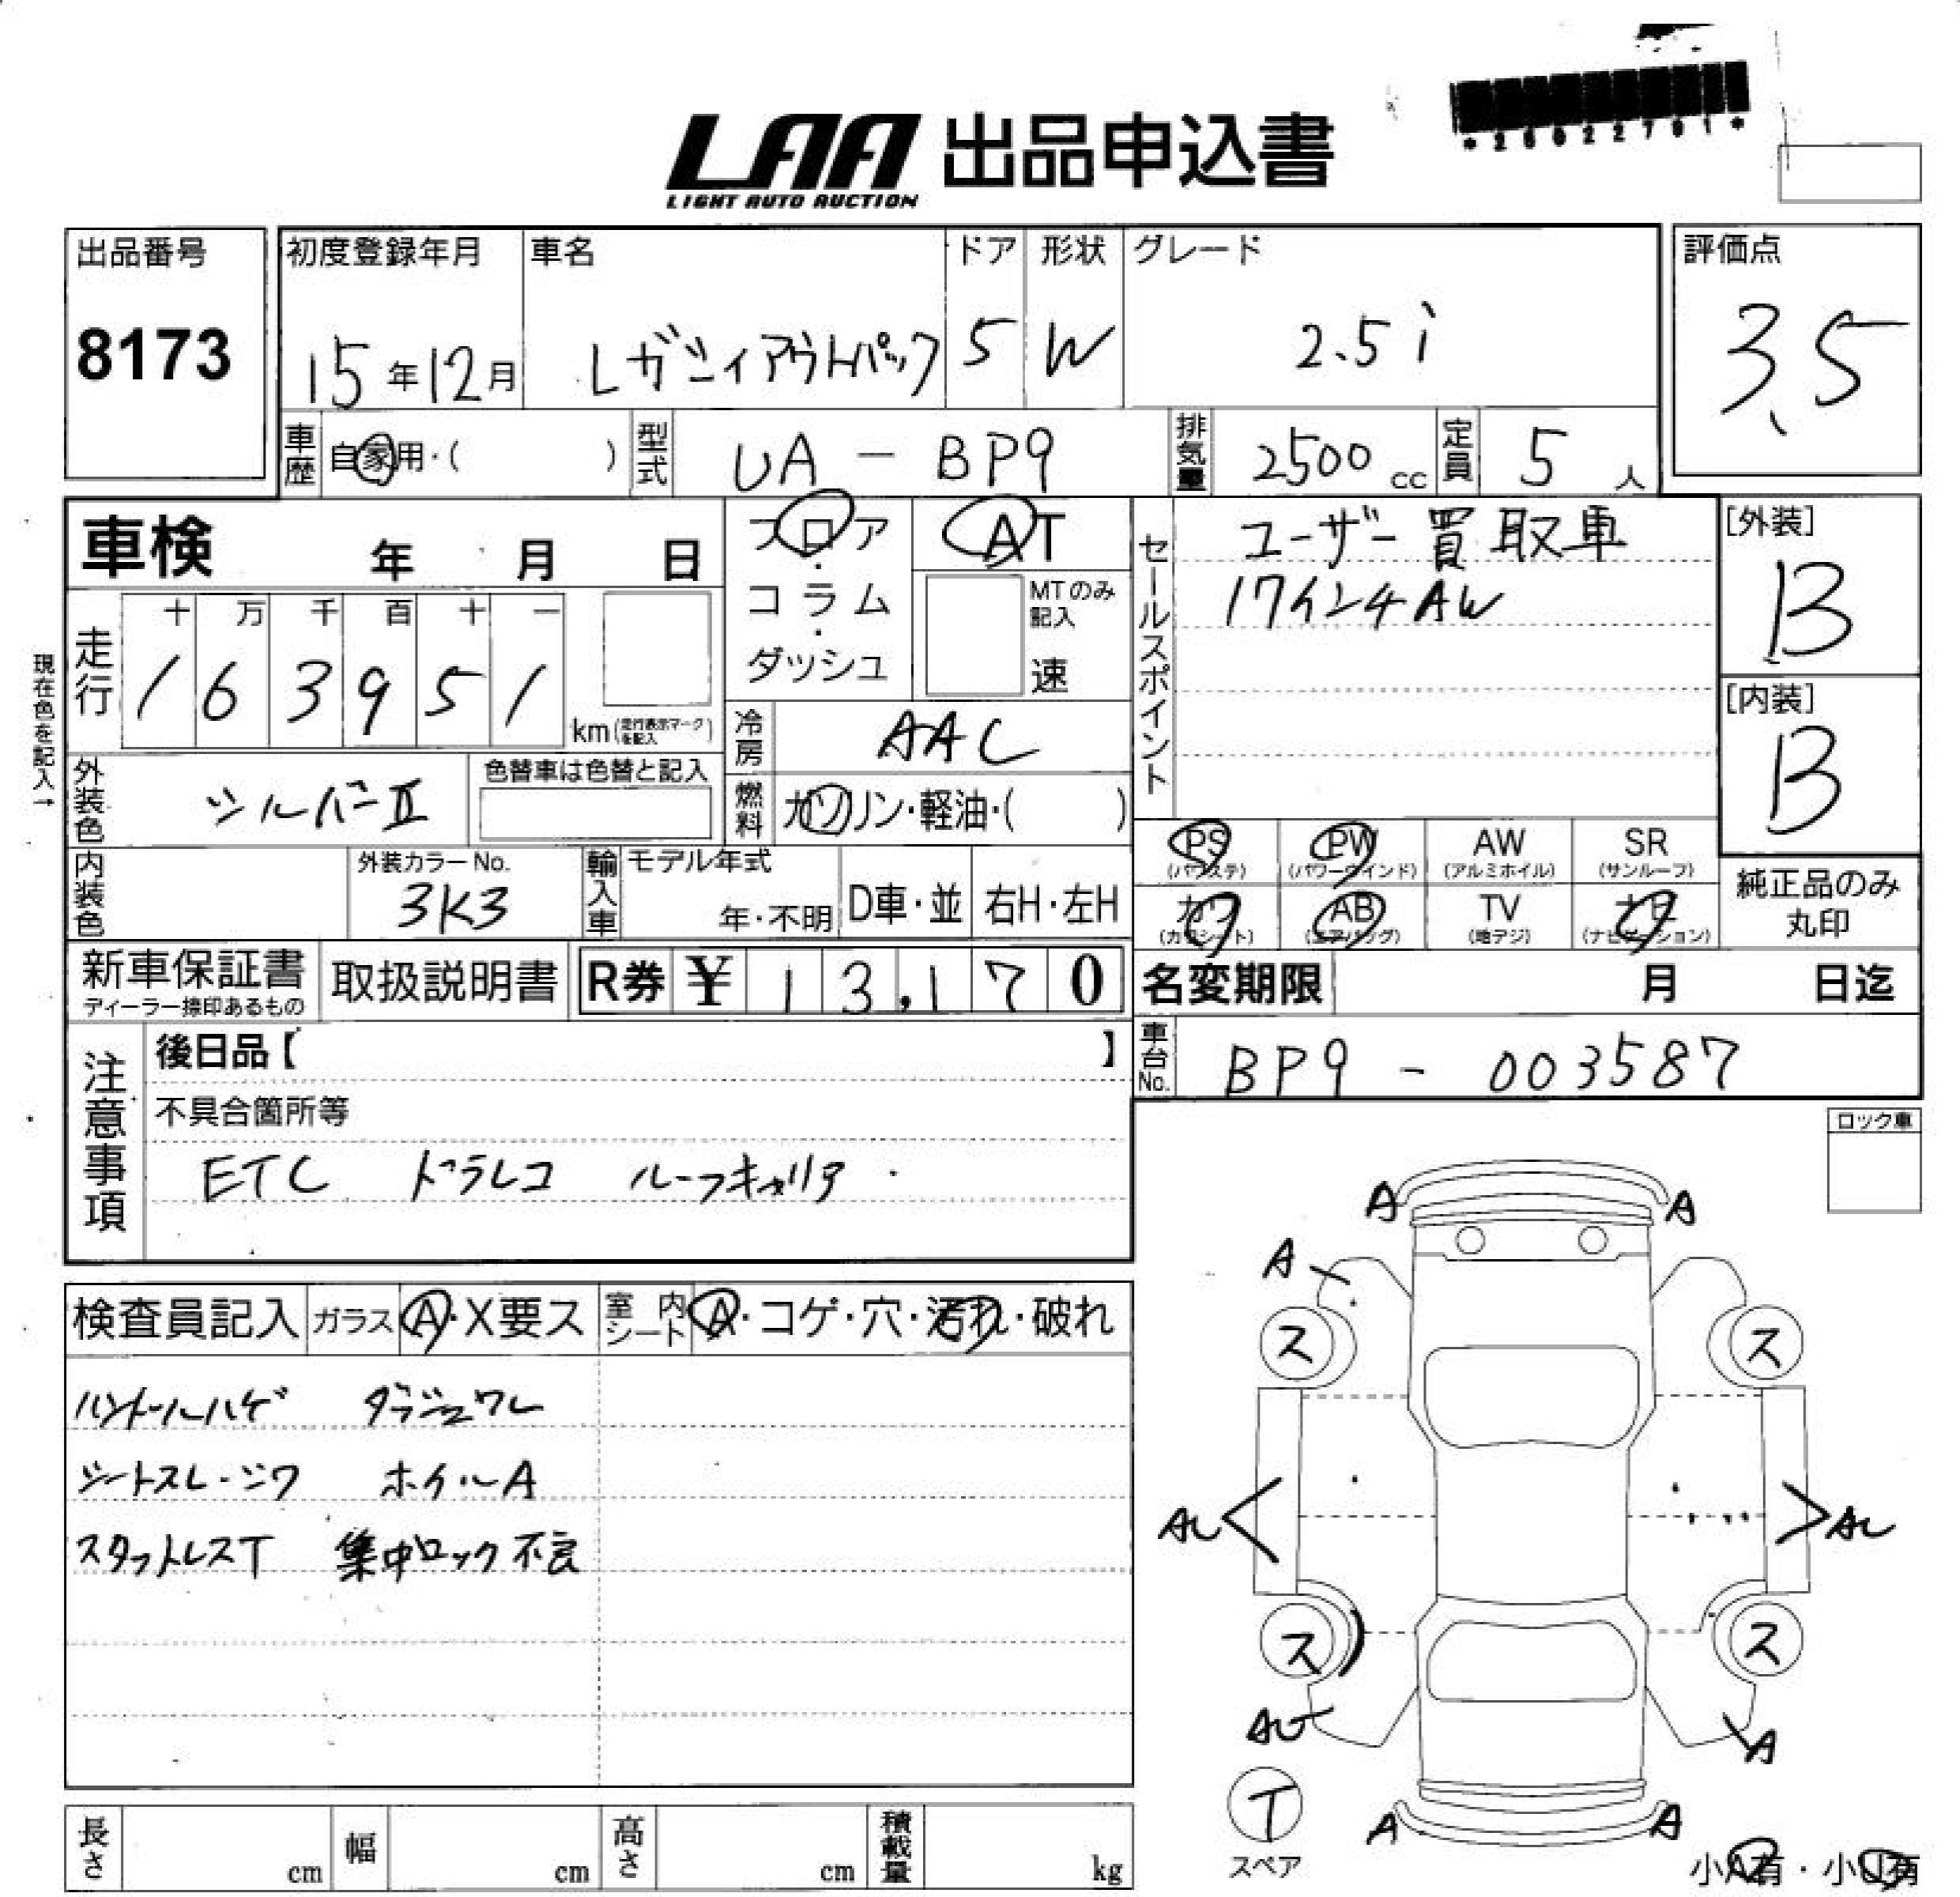 *26022791*
LAA 出品申込書
LIGHT AUTO AUCTION
出品番号 初度登録年月 車名 ドア 形状 グレード 評価点
8173 15年12月 レガシィアウトバック 5 W 2.5i 3.5
車歴 自家用・( ) 型式 UA-BP9 排気量 2500cc 定員 5人
車検 年 月 日
フロア・コラム・ダッシュ
AT
MTのみ記入
速
セールスポイント
ユーザー買取車
17インチAW
[外装]
B
[内装]
B
現在色を記入→
走行 十 万 千 百 十 一
1 6 3 9 5 1 km(走行表示マークを記入)
冷房 AAC
外装色 シルバーII 色替車は色替と記入
燃料 ガソリン・軽油・( )
PS AW SR PW
(パワステ) (パワーウインド) (アルミホイル) (サンルーフ)
カワ AB TV ナビ
(カワシート) (エアバッグ) (地デジ) (ナビゲーション)
純正品のみ丸印
内装色 外装カラーNo. 3K3 輸入車 モデル年式 年・不明 D車・並 右H・左H
新車保証書 ディーラー捺印あるもの 取扱説明書 R券 ¥ 13,170
名変期限 月 日迄
注意事項
後日品【 】
車台No. BP9-003587
不具合箇所等
ETC ドラレコ ルーフキャリア
ロック車
検査員記入 ガラス A・X要ス 室内シート A・コゲ・穴・汚れ・破れ
ハンドルハゲ ダッシュワレ
シートスレ・シワ ホイルA
スタットレスT 集中ロック不良
A A
A
ス ス
AU AU
ス ス
AU A
T
スペア
A A
小A有・小U有
長さ cm 幅 cm 高さ cm 積載量 kg